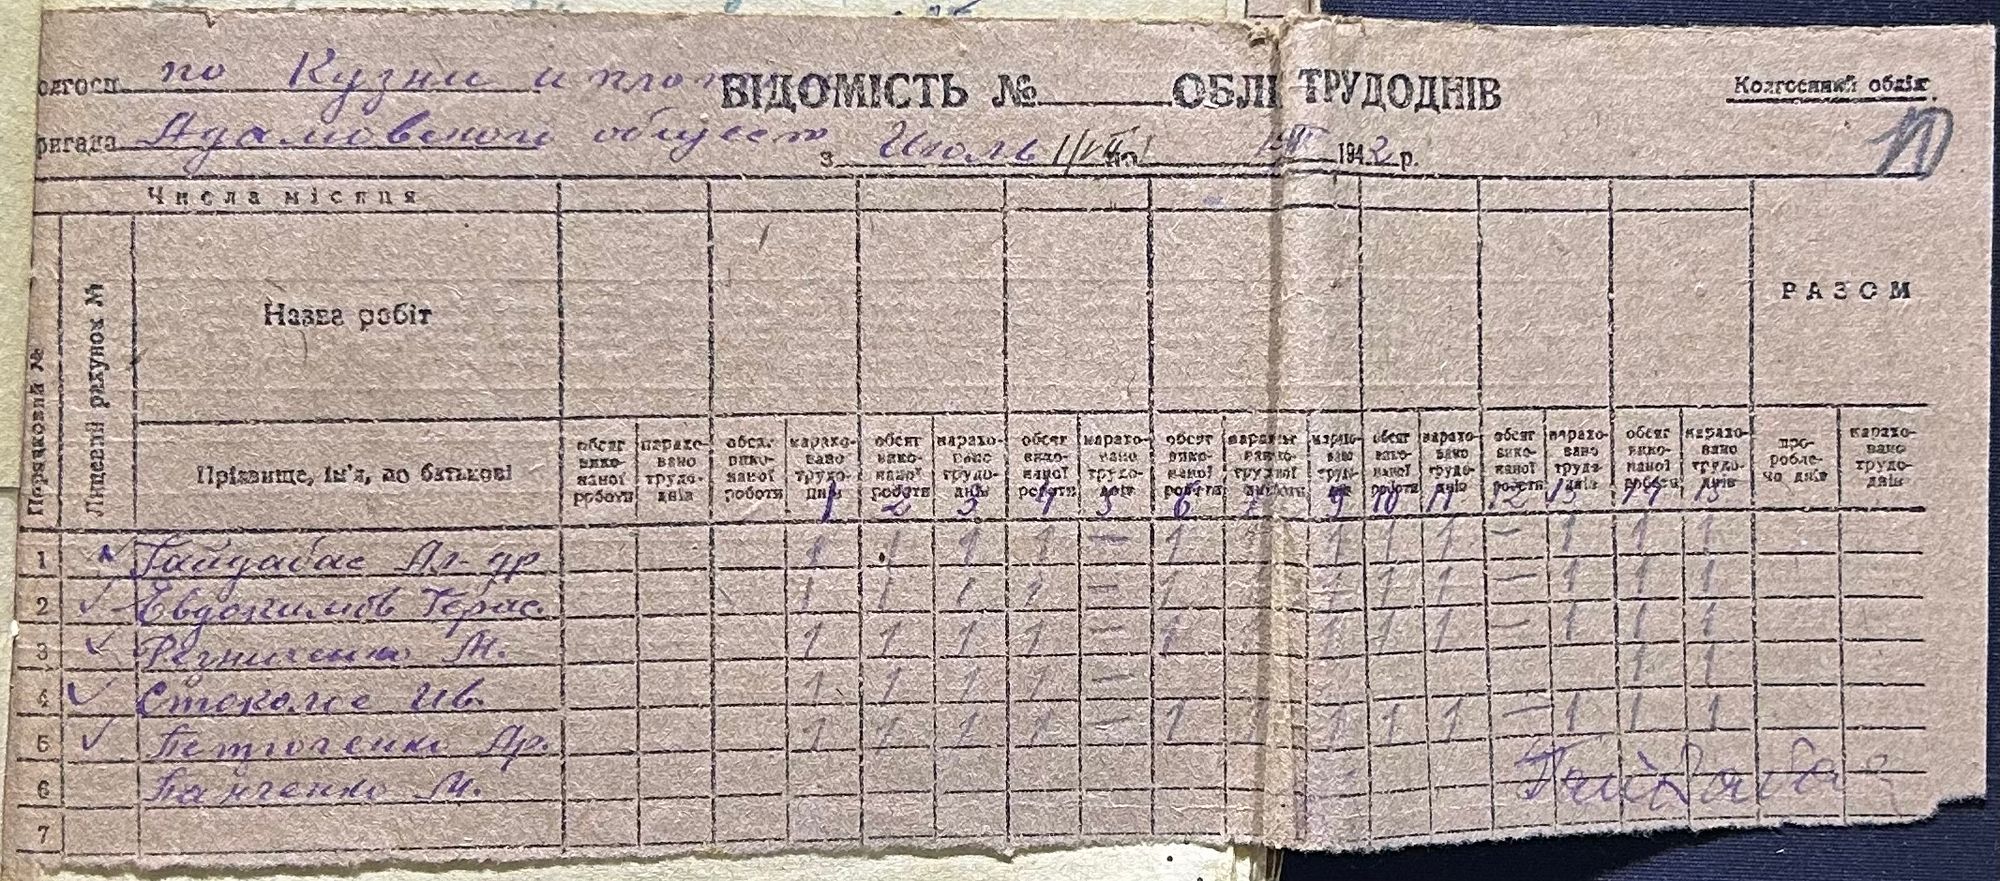 олгосп по Кузни и плот ВІДОМІСТЬ № ОБЛІ ТРУДОДНІВ Колгоспний облік
ригада Адамовской общест з Июль 1/VII по 15/VII 1942 р. 10
Числа місяця
Порядковий №
Лицевий рахунок №
Назва робіт РАЗОМ
Прізвище, ім'я, по батькові
обсяг виконаної роботи нараховано трудоднів обсяг виконаної роботи нараховано трудоднів обсяг виконаної роботи нараховано трудоднів обсяг виконаної роботи нараховано трудоднів обсяг виконаної роботи нараховано трудоднів нараховано трудоднів обсяг виконаної роботи нараховано трудоднів обсяг виконаної роботи нараховано трудоднів обсяг виконаної роботи нараховано трудоднів проробле-но днів нараховано трудоднів
1 2 3 4 5 6 7 9 10 11 12 13 14 15
1 Гайдабас Ал-др 1 1 1 1 — 1 1 1 1 1 — 1 1 1
2 ✓ Евдокимов Герас. 1 1 1 1 — 1 1 1 1 1 — 1 1 1
3 ✓ Резниченко М. 1 1 1 1 — 1 1 1 1 1 — 1 1 1
4 ✓ Стоколос Ив. 1 1 1 1 — 1 1
5 ✓ Петюченко Ар. 1 1 1 1 — 1 1 1 1 1 — 1 1 1
6 Панченко М. Гайдабас
7